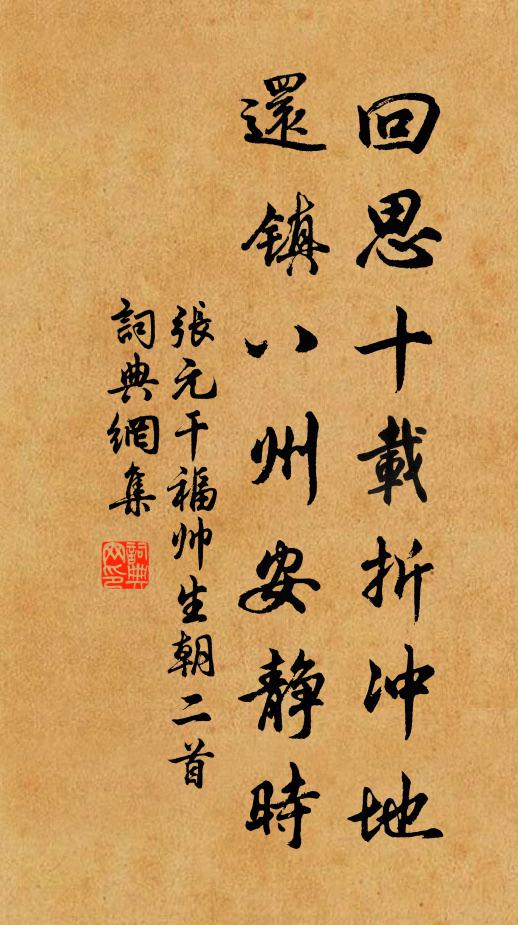 回思十載折冲地
還镇八州安静時
張元干福帅生朝二首
詞典網集
詞典
网印